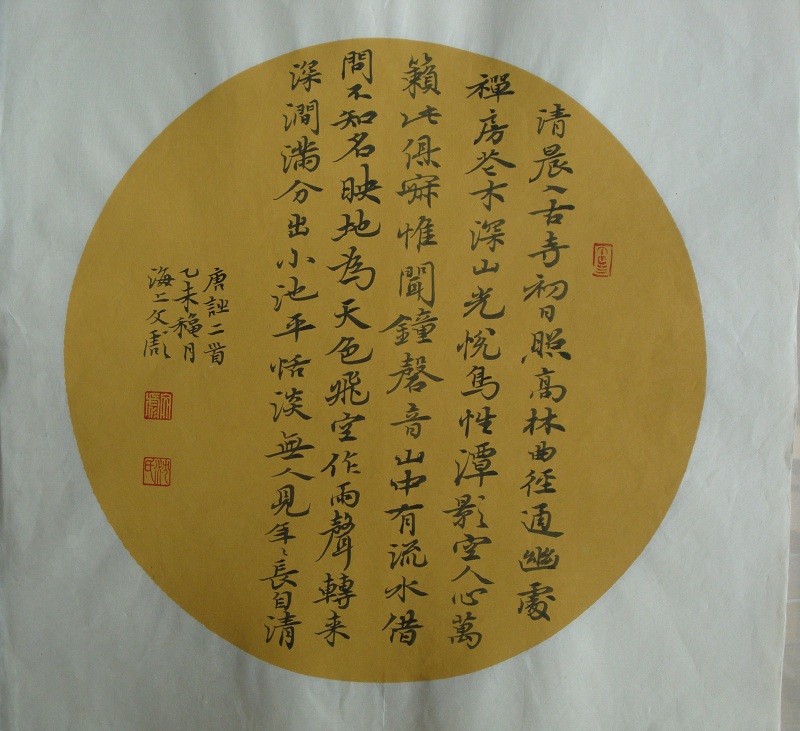 清晨入古寺初日照高林曲徑通幽處
禪房花木深山光悅鳥性潭影空人心萬
籟此俱寂惟聞鐘磬音山中有流水借
問不知名映地為天色飛空作雨聲轉来
深澗滿分出小池平恬淡無人見年々長自清
唐詩二首
乙未穐月
海上文彪